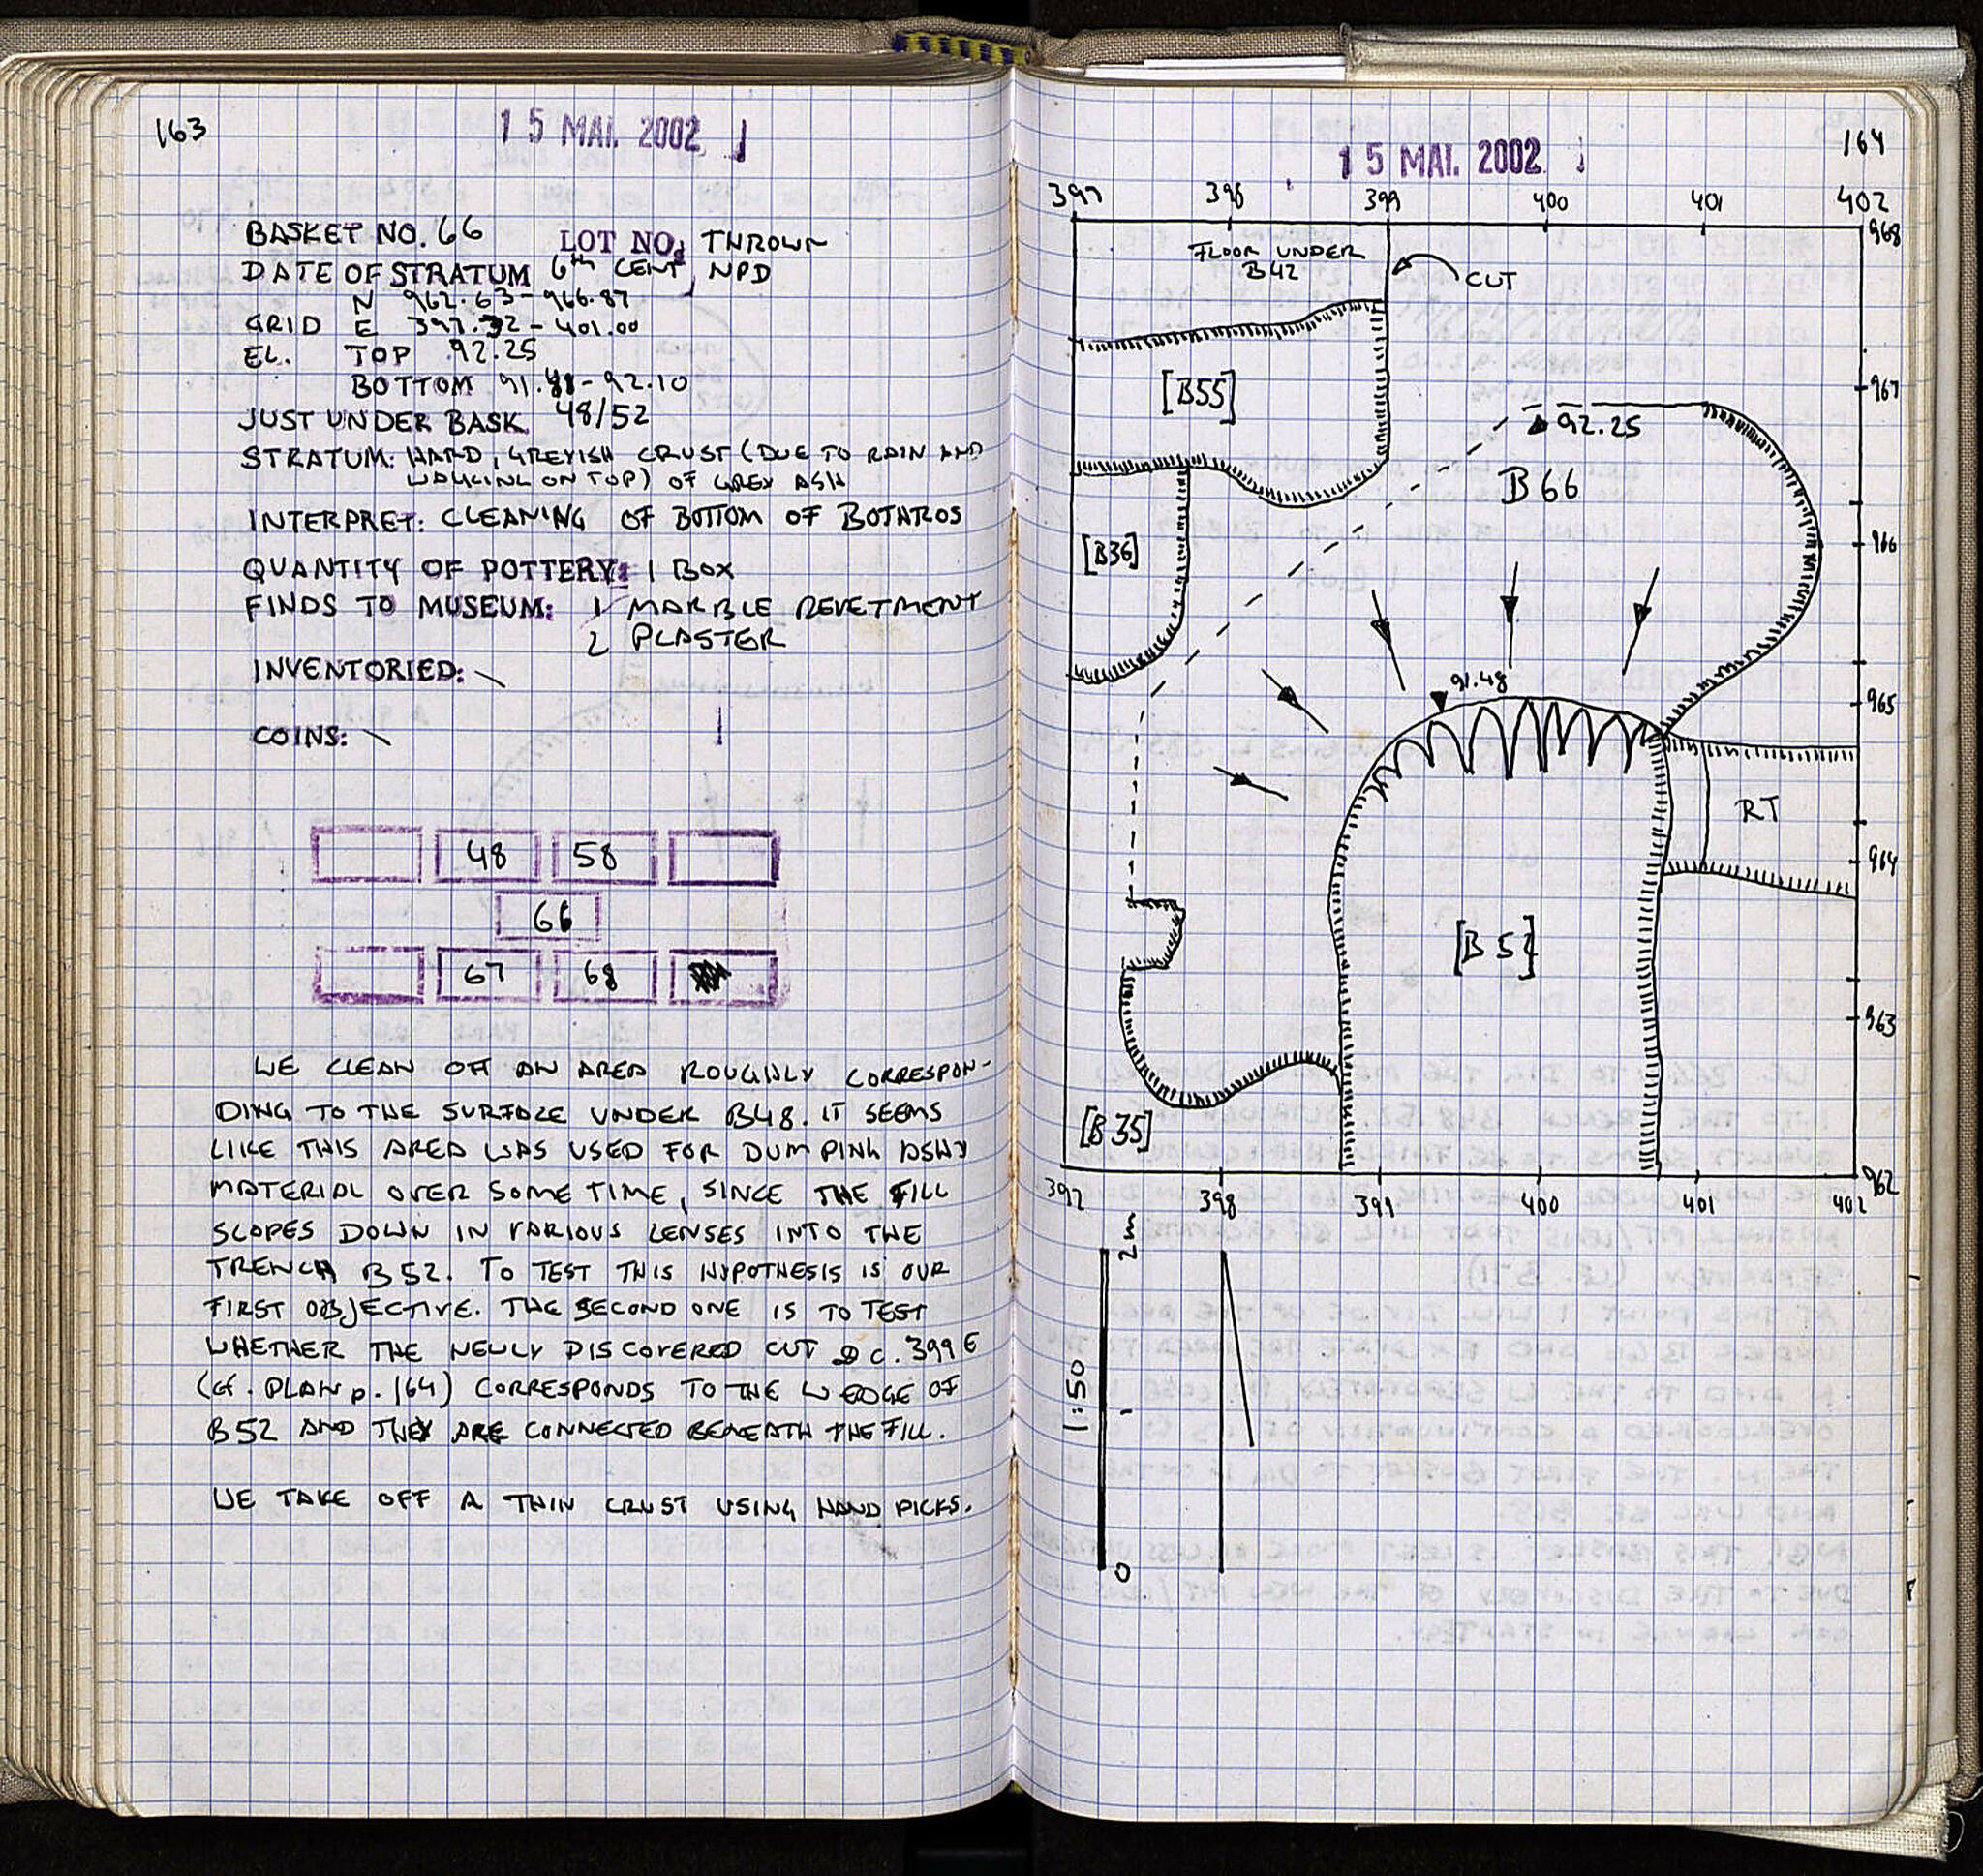 163
15 MAI. 2002
BASKET NO. 66 LOT NO. THROWN
DATE OF STRATUM 6th CENT, NPD
N 962.63-966.87
GRID E 397.32-401.00
EL. TOP 92.25
BOTTOM 91.48-92.10
JUST UNDER BASK. 48/52
STRATUM: HARD, GREYISH CRUST (DUE TO RAIN AND
WALKING ON TOP) OF GREY ASH
INTERPRET: CLEANING OF BOTTOM OF BOTHROS
QUANTITY OF POTTERY: 1 BOX
FINDS TO MUSEUM: 1 MARBLE REVETMENT
2 PLASTER
INVENTORIED: \
COINS: \
48 58
66
67 68
WE CLEAN OFF AN AREA ROUGHLY CORRESPON-
DING TO THE SURFACE UNDER B48. IT SEEMS
LIKE THIS AREA WAS USED FOR DUMPING ASHY
MATERIAL OVER SOME TIME, SINCE THE FILL
SLOPES DOWN IN VARIOUS LENSES INTO THE
TRENCH B52. TO TEST THIS HYPOTHESIS IS OUR
FIRST OBJECTIVE. THE SECOND ONE IS TO TEST
WHETHER THE NEWLY DISCOVERED CUT @ C. 399 E
(cf. PLAN p. 164) CORRESPONDS TO THE W EDGE OF
B52 AND THEY ARE CONNECTED BENEATH THE FILL.
WE TAKE OFF A THIN CRUST USING HAND PICKS.
164
15 MAI. 2002
397 398 399 400 401 402
968
FLOOR UNDER
B42
CUT
967
[B55]
92.25
B66
[B36]
966
91.48
965
RT
964
[B52]
963
[B35]
962
397 398 399 400 401 402
2m
1:50
0